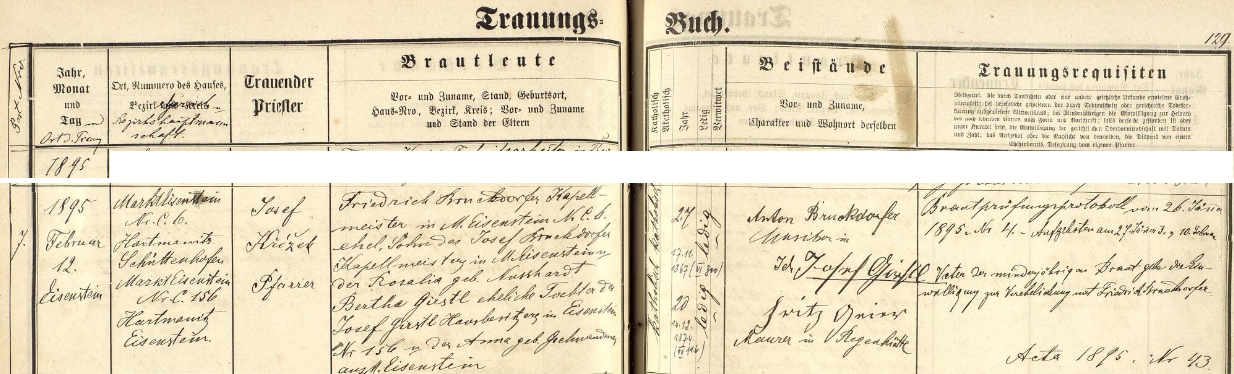 Trauungs-Buch.
129.
Jahr,
Monat
und
Tag
Ort d. Trau
Ort, Nummero des Hauses,
Bezirk
Bezirkshauptmann
schaft.
Trauender
Priester
Brautleute
Vor- und Zuname, Stand, Geburtsort,
Haus-Nro., Bezirk, Kreis; Vor- und Zuname
und Stand der Eltern
Katholisch
Akatholisch
Jahr
Ledig
Verwitwet
Beistände
Vor- und Zuname,
Charakter und Wohnort derselben
Trauungsrequisiten
1895
7.
1895
Februar
12.
Eisenstein
Markt Eisenstein
Nr. C. 6.
Hartmanitz
Schüttenhofen
Markt Eisenstein
Nr. C. 156
Hartmanitz
Eisenstein.
Josef
Křížek
Pfarrer
Friedrich Bruckdorfer Kapell-
meister in M. Eisenstein N. C. 6.
ehel. Sohn des Josef Bruckdorfer
Kapellmeister in M. Eisenstein u.
der Rosalia geb.
Bertha Girstl eheliche Tochter des
Josef Girstl Hausbesitzers in Eisenstein
Nr 156 u. der Anna geb. Gschwendtner
aus M. Eisenstein
katholisch katholisch
27
17.11.
1867
ledig
20
14.12.
1874
ledig
Anton Bruckdorfer
Musiker in
Ich Josef Girstl
Fritz
Maurer in Regenhütte
Brautprüfungsprotokoll vom 26. Jänner
1895. Nr 4. - Aufgeboten am 27. Jän. 3. u. 10. Febru.
Vater der minderjährigen Braut gebe die Ein-
willigung zur Verehelichung mit Friedrich Bruckdorfer.
Acta 1895. Nr 43.